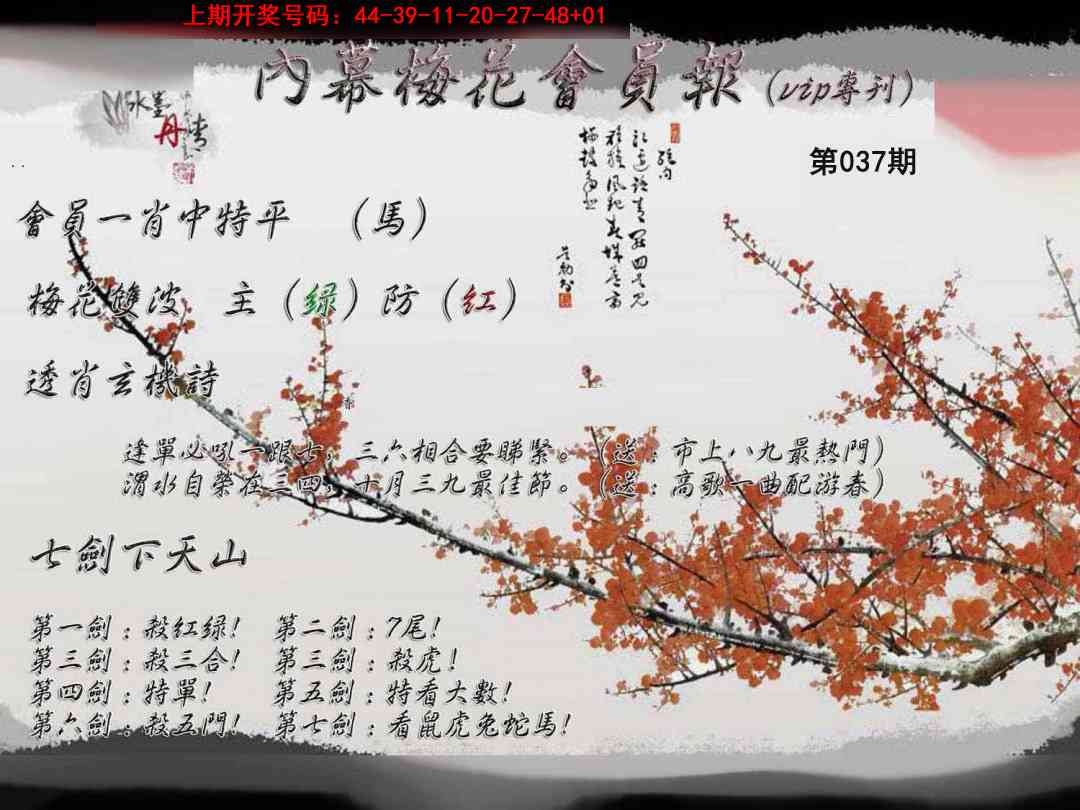 上期开奖号码：44-39-11-20-27-48+01
內幕梅花會員報（vip專刊）
水墨
丹青
第037期
會員一肖中特平　（馬）
梅花雙波　主（绿）防（红）
透肖玄機詩
逢單必吼一跟七，三六相合要睇緊。（送：市上八九最熱門）
渭水自榮在三四，十月三九最佳節。（送：高歌一曲配游春）
七劍下天山
第一劍：殺红绿！　第二劍：7尾！
第三劍：殺三合！　第三劍：殺虎！
第四劍：特單！　第五劍：特看大數！
第六劍：殺五門！　第七劍：看鼠虎兔蛇馬！